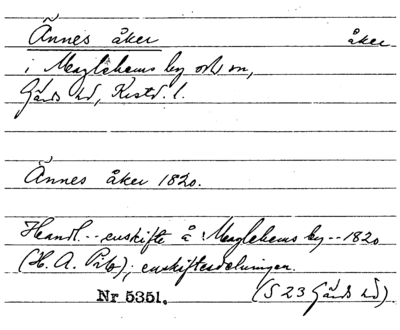 Ännes åker åker
i Maglehems by och sn,
Gärds hd, Krstd. l.
Ännes åker 1820.
Handl... enskifte å Maglehems by -- 1820
(H. A. ); enskiftesdelningen.
Nr 5351. (S 23 Gärds hd)